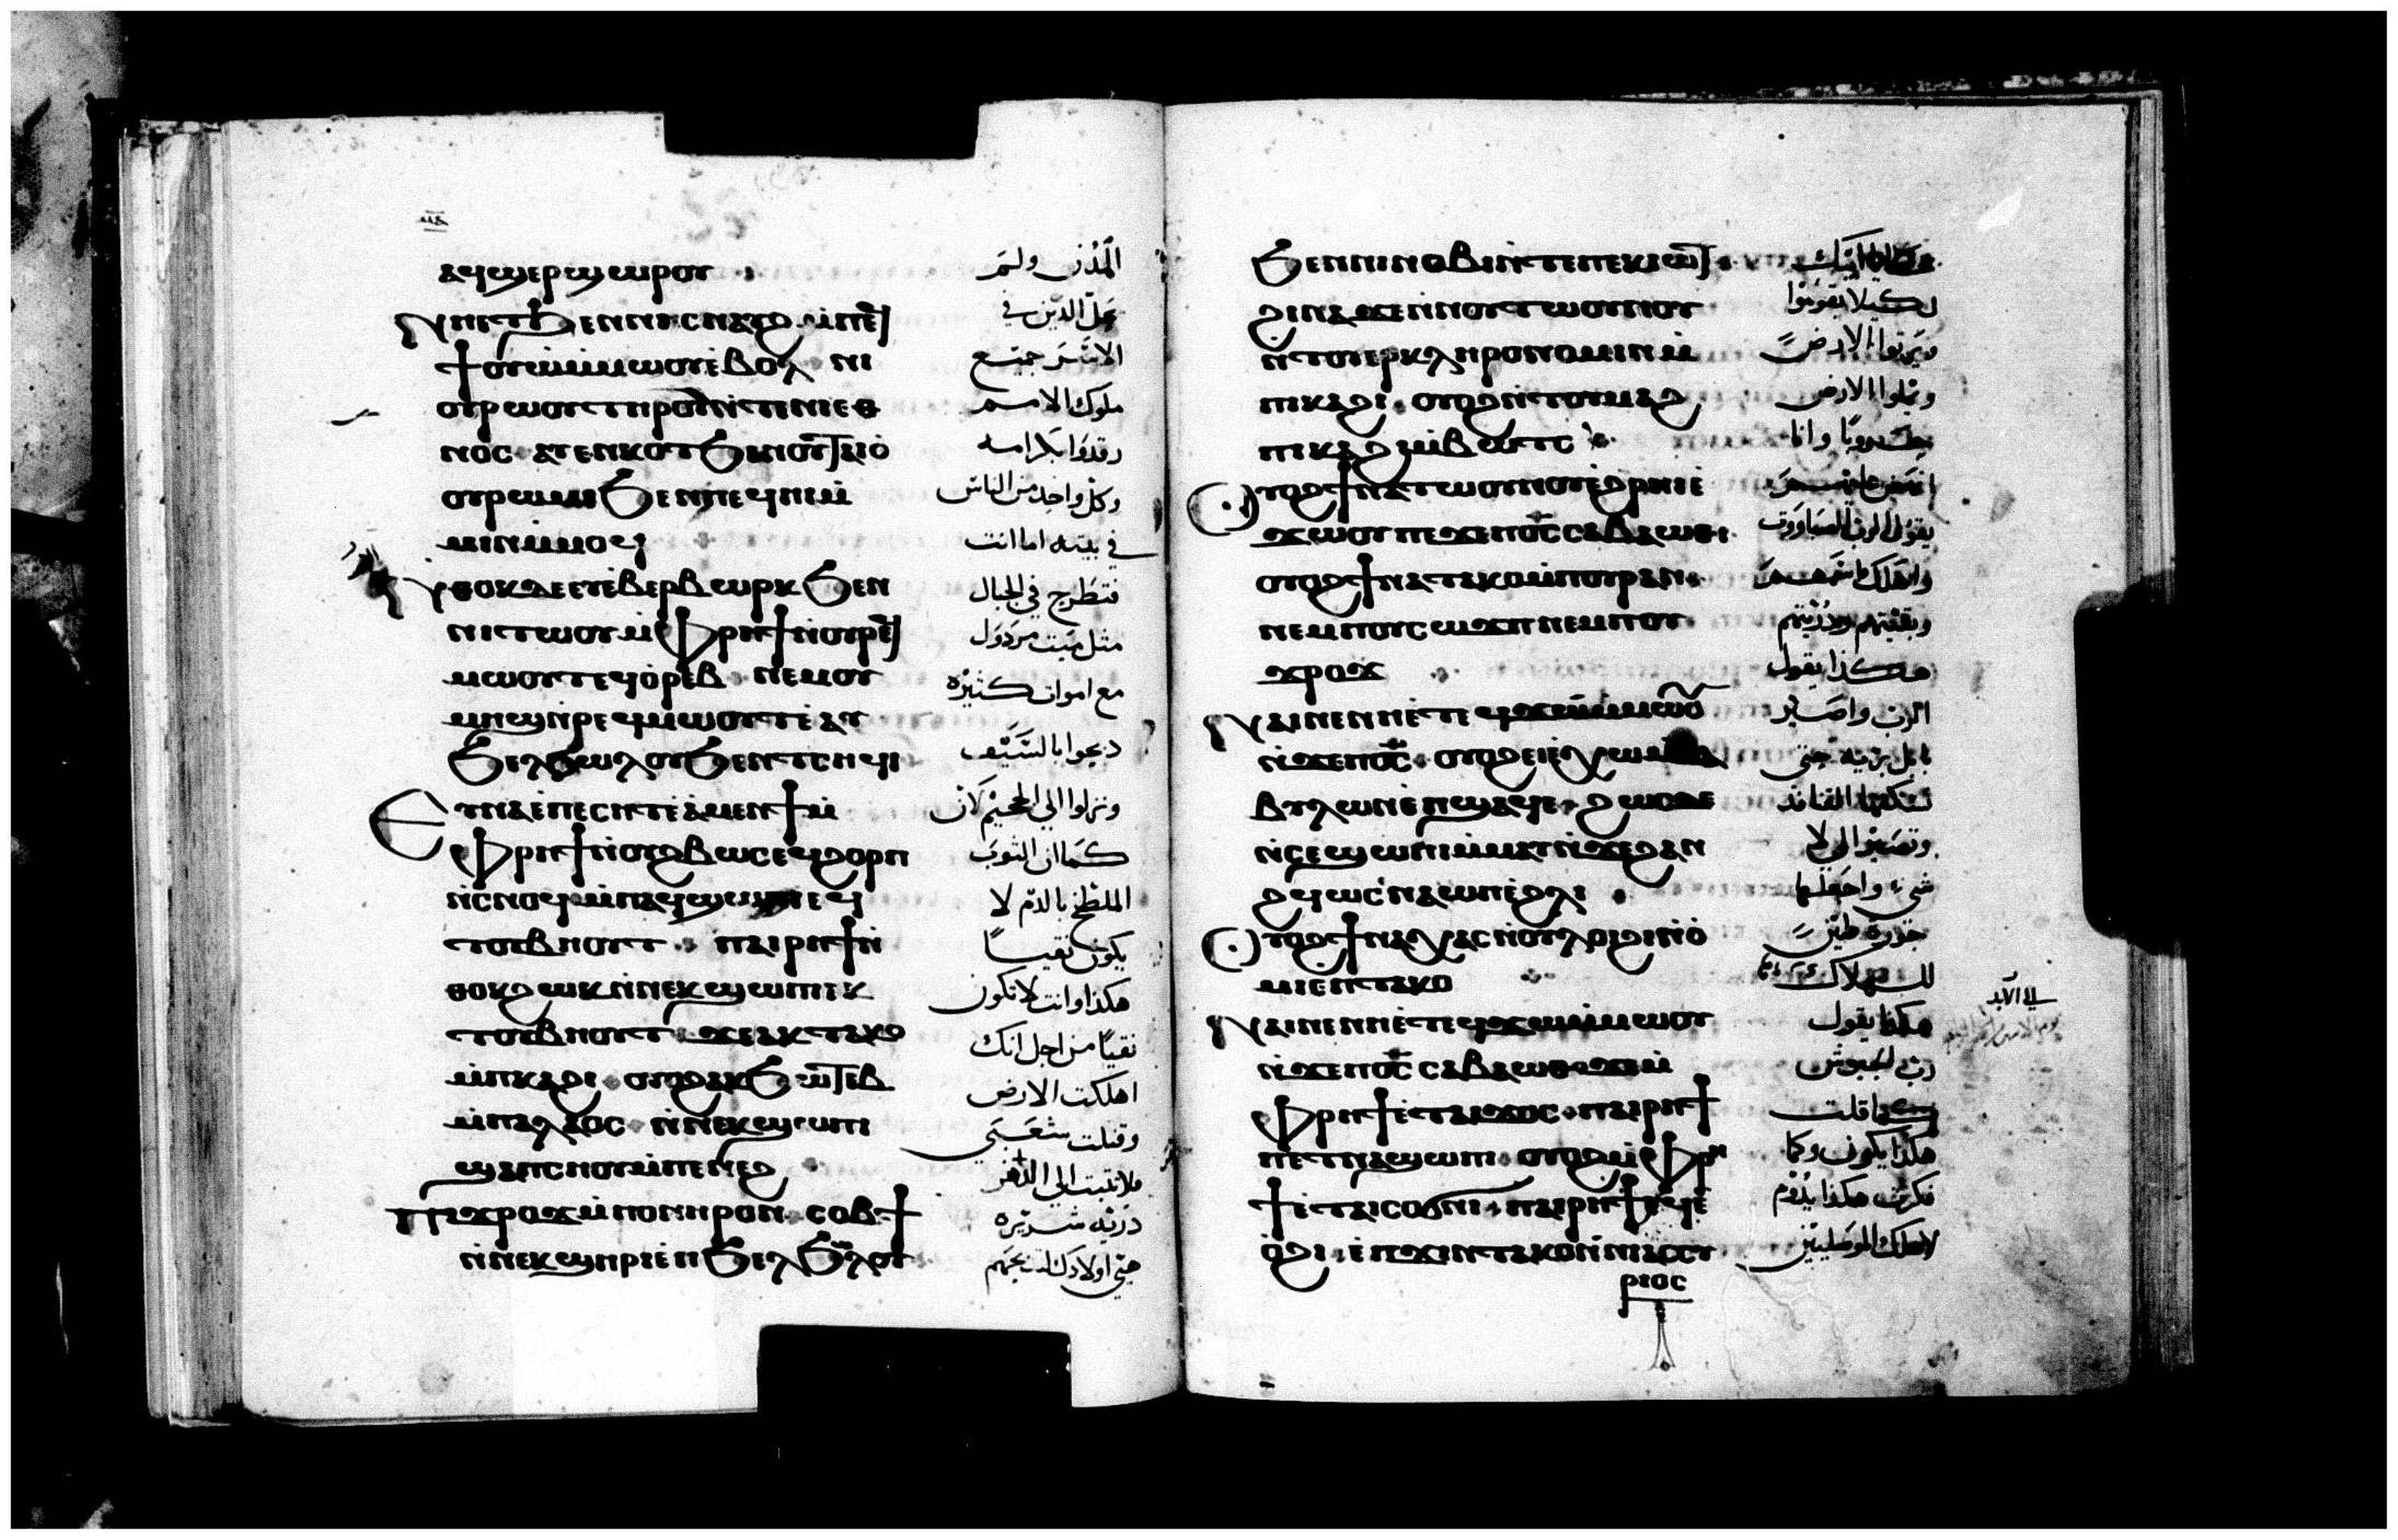 ⲁϥϣⲉⲣϣⲱⲣⲟⲩ
ⲛⲏⲉⲧϧⲉⲛ ⲛⲓⲥⲛⲁⲩϩ ⲙⲡⲉϥ
ϯⲟⲩⲱ ⲙⲙⲱⲟⲩ ⲉⲃⲟⲗ ⲛⲓ
ⲟⲩⲣⲱⲟⲩ ⲧⲏⲣⲟⲩ ⲛⲧⲉ ⲛⲓⲉⲑ
ⲛⲟⲥ ⲁⲩⲉⲛⲕⲟⲧ ϧⲉⲛ ⲟⲩⲧⲁⲓⲟ
ⲟⲩⲣⲱⲙⲓ ϧⲉⲛ ⲡⲉϥⲏⲓ
ⲙⲙⲓⲛ ⲙⲙⲟϥ
ⲛⲑⲟⲕ ⲇⲉ ⲉⲩⲉⲃⲉⲣⲃⲱⲣⲕ ϧⲉⲛ
ⲛⲓⲧⲱⲟⲩ ⲙⲫⲣⲏϯ ⲛⲟⲩⲣⲉϥ
ⲙⲱⲟⲩⲧ ⲉϥⲟⲣⲉⲃ ⲛⲉⲙ ⲟⲩ
ⲙⲏϣ ⲛⲣⲉϥⲙⲱⲟⲩⲧ ⲉⲁⲩ
ϧⲉⲗϧⲱⲗⲟⲩ ϧⲉⲛ ⲧⲥⲏϥⲓ
ⲉⲩⲛⲁ ⲉⲡⲉⲥⲏⲧ ⲉⲁⲙⲉⲛϯ ⲙ
ⲫⲣⲏϯ ⲛⲟⲩϩⲃⲱⲥ ⲉϥϩⲟⲣⲡ
ⲛⲥⲛⲟϥ ⲙⲡⲁϥϣⲱⲡⲓ ⲉϥ
ⲧⲟⲩⲃⲏⲟⲩⲧ ⲡⲁⲓⲣⲏϯ ⲛ
ⲑⲟⲕ ϩⲱⲕ ⲛⲛⲉⲕϣⲱⲡⲓ ⲉⲕ
ⲧⲟⲩⲃⲏⲟⲩⲧ ϫⲉ ⲁⲕⲧⲁⲕⲟ
ⲙⲡⲕⲁϩⲓ ⲟⲩⲟϩ ⲁⲕϧⲱⲧⲉⲃ
ⲙⲡⲁⲗⲁⲟⲥ ⲛⲛⲉⲕϣⲱⲡⲓ
ϣⲁ ⲡⲥⲏⲟⲩ ⲙⲡⲉⲛⲉϩ
ⲡϫⲣⲟϫ ⲙⲡⲟⲛⲏⲣⲟⲛ ⲥⲟⲃϯ
ⲛⲛⲉⲕϣⲏⲣⲓ ⲉⲡϧⲉⲗϧⲱⲗⲟⲩ
المدن ولم
يحل الذين في
الاسر جميع
ملوك الامم
رقدوا بكرامه
وكل واحد من الناس
في بيته اما انت
فتطرح في الجبال
مثل ميت مردول
مع اموات كثيره
دبحوا بالسيف
ونزلوا الي الجحيم لان
كما ان التوب
الملطخ بالدم لا
يكون نقيا
هكذا وانت لا تكون
نقيا من اجل انك
اهلكت الارض
وقتلت شعبي
فلا تثبت الي الدهر
ذريه شريره
هيي اولادك لتدبحهم
ϧⲉⲛ ⲛⲓⲛⲟⲃⲓ ⲛⲧⲉ ⲡⲉⲕⲓⲱⲧ
ϩⲓⲛⲁ ϫⲉ ⲛⲛⲟⲩⲧⲱⲟⲩⲛⲟⲩ
ⲛⲧⲟⲩⲉⲣⲕⲗⲏⲣⲟⲛⲟⲙⲓⲛ ⲙ
ⲡⲓⲕⲁϩⲓ ⲟⲩⲟϩ ⲛⲧⲟⲩⲙⲁϩ
ⲡⲓⲕⲁϩⲓ ⲙⲃⲱⲧⲥ
ⲟⲩⲟϩ ϯⲛⲁⲧⲱⲟⲩⲛⲟⲩ ⲉϩⲣⲏⲓ ⲉ
ϫⲱⲟⲩ ⲡⲉϫⲉ ⲡⲟⲥ ⲥⲁⲃⲁⲱⲑ
ⲟⲩⲟϩ ϯⲛⲁⲧⲁⲕⲟ ⲙⲡⲟⲩⲣⲁⲛ
ⲛⲉⲙ ⲡⲟⲩⲥⲱϫⲡ ⲛⲉⲙ ⲡⲟⲩ
ϫⲣⲟϫ
ⲛⲁⲓ ⲛⲉ ⲛⲏ ⲉⲧⲉϥϫⲱ ⲙⲙⲱⲟⲩ
ⲛϫⲉ ⲡⲟⲥ ⲟⲩⲟϩ ⲉⲓⲉⲭⲱ
ⲃⲩⲗⲱⲛ ⲉⲡϣⲁϥⲉ ϩⲱⲥⲇⲉ
ⲛⲥⲉϣⲱⲡⲓ ⲙⲙⲁⲩ ⲛϫⲉ ϩⲁⲛ
ϩϥⲱ ⲥⲛⲁϣⲱⲡⲓ ⲉϩⲗⲓ
ⲟⲩⲟϩ ϯⲛⲁⲭⲁⲥ ⲛⲟⲩⲗⲟⲓϩⲓ ⲛⲟ
ⲙⲓ ⲉⲡⲧⲁⲕⲟ
ⲛⲁⲓ ⲛⲉ ⲛⲏ ⲉⲧⲉϥϫⲱ ⲙⲙⲱⲟⲩ
ⲛϫⲉ ⲡⲟⲥ ⲥⲁⲃⲁⲱⲑ ϫⲉ ⲙ
ⲫⲣⲏϯ ⲉⲧⲁⲓϫⲟⲥ ⲡⲁⲓⲣⲏϯ
ⲡⲉⲧⲛⲁϣⲱⲡⲓ ⲟⲩⲟϩ ⲙⲫⲣⲏ
ϯ ⲉⲧⲁⲓⲥⲟϭⲛⲓ ⲡⲁⲓⲣⲏϯ ⲉϥⲉ
ⲟϩⲓ ⲉⲡϫⲓⲛⲧⲁⲕⲟ ⲛⲛⲓⲁⲥⲥⲩ
ⲣⲓⲟⲥ
لكيلا يقوموا
ويرتوا الارض
ويملوا الارض
يقول الرب الصباووت
وبقيتهم وذريتهم
هكذا يقول
الرب واصير
بابل بريه حتي
تسكنها القنافد
شي واجعلها
للهلاك
هكذا يقول
رب الجيوش
كما قلت
هكذا يكون وكما
فكرت هكذا يدوم
لاهلك الموصليين
الي الابد